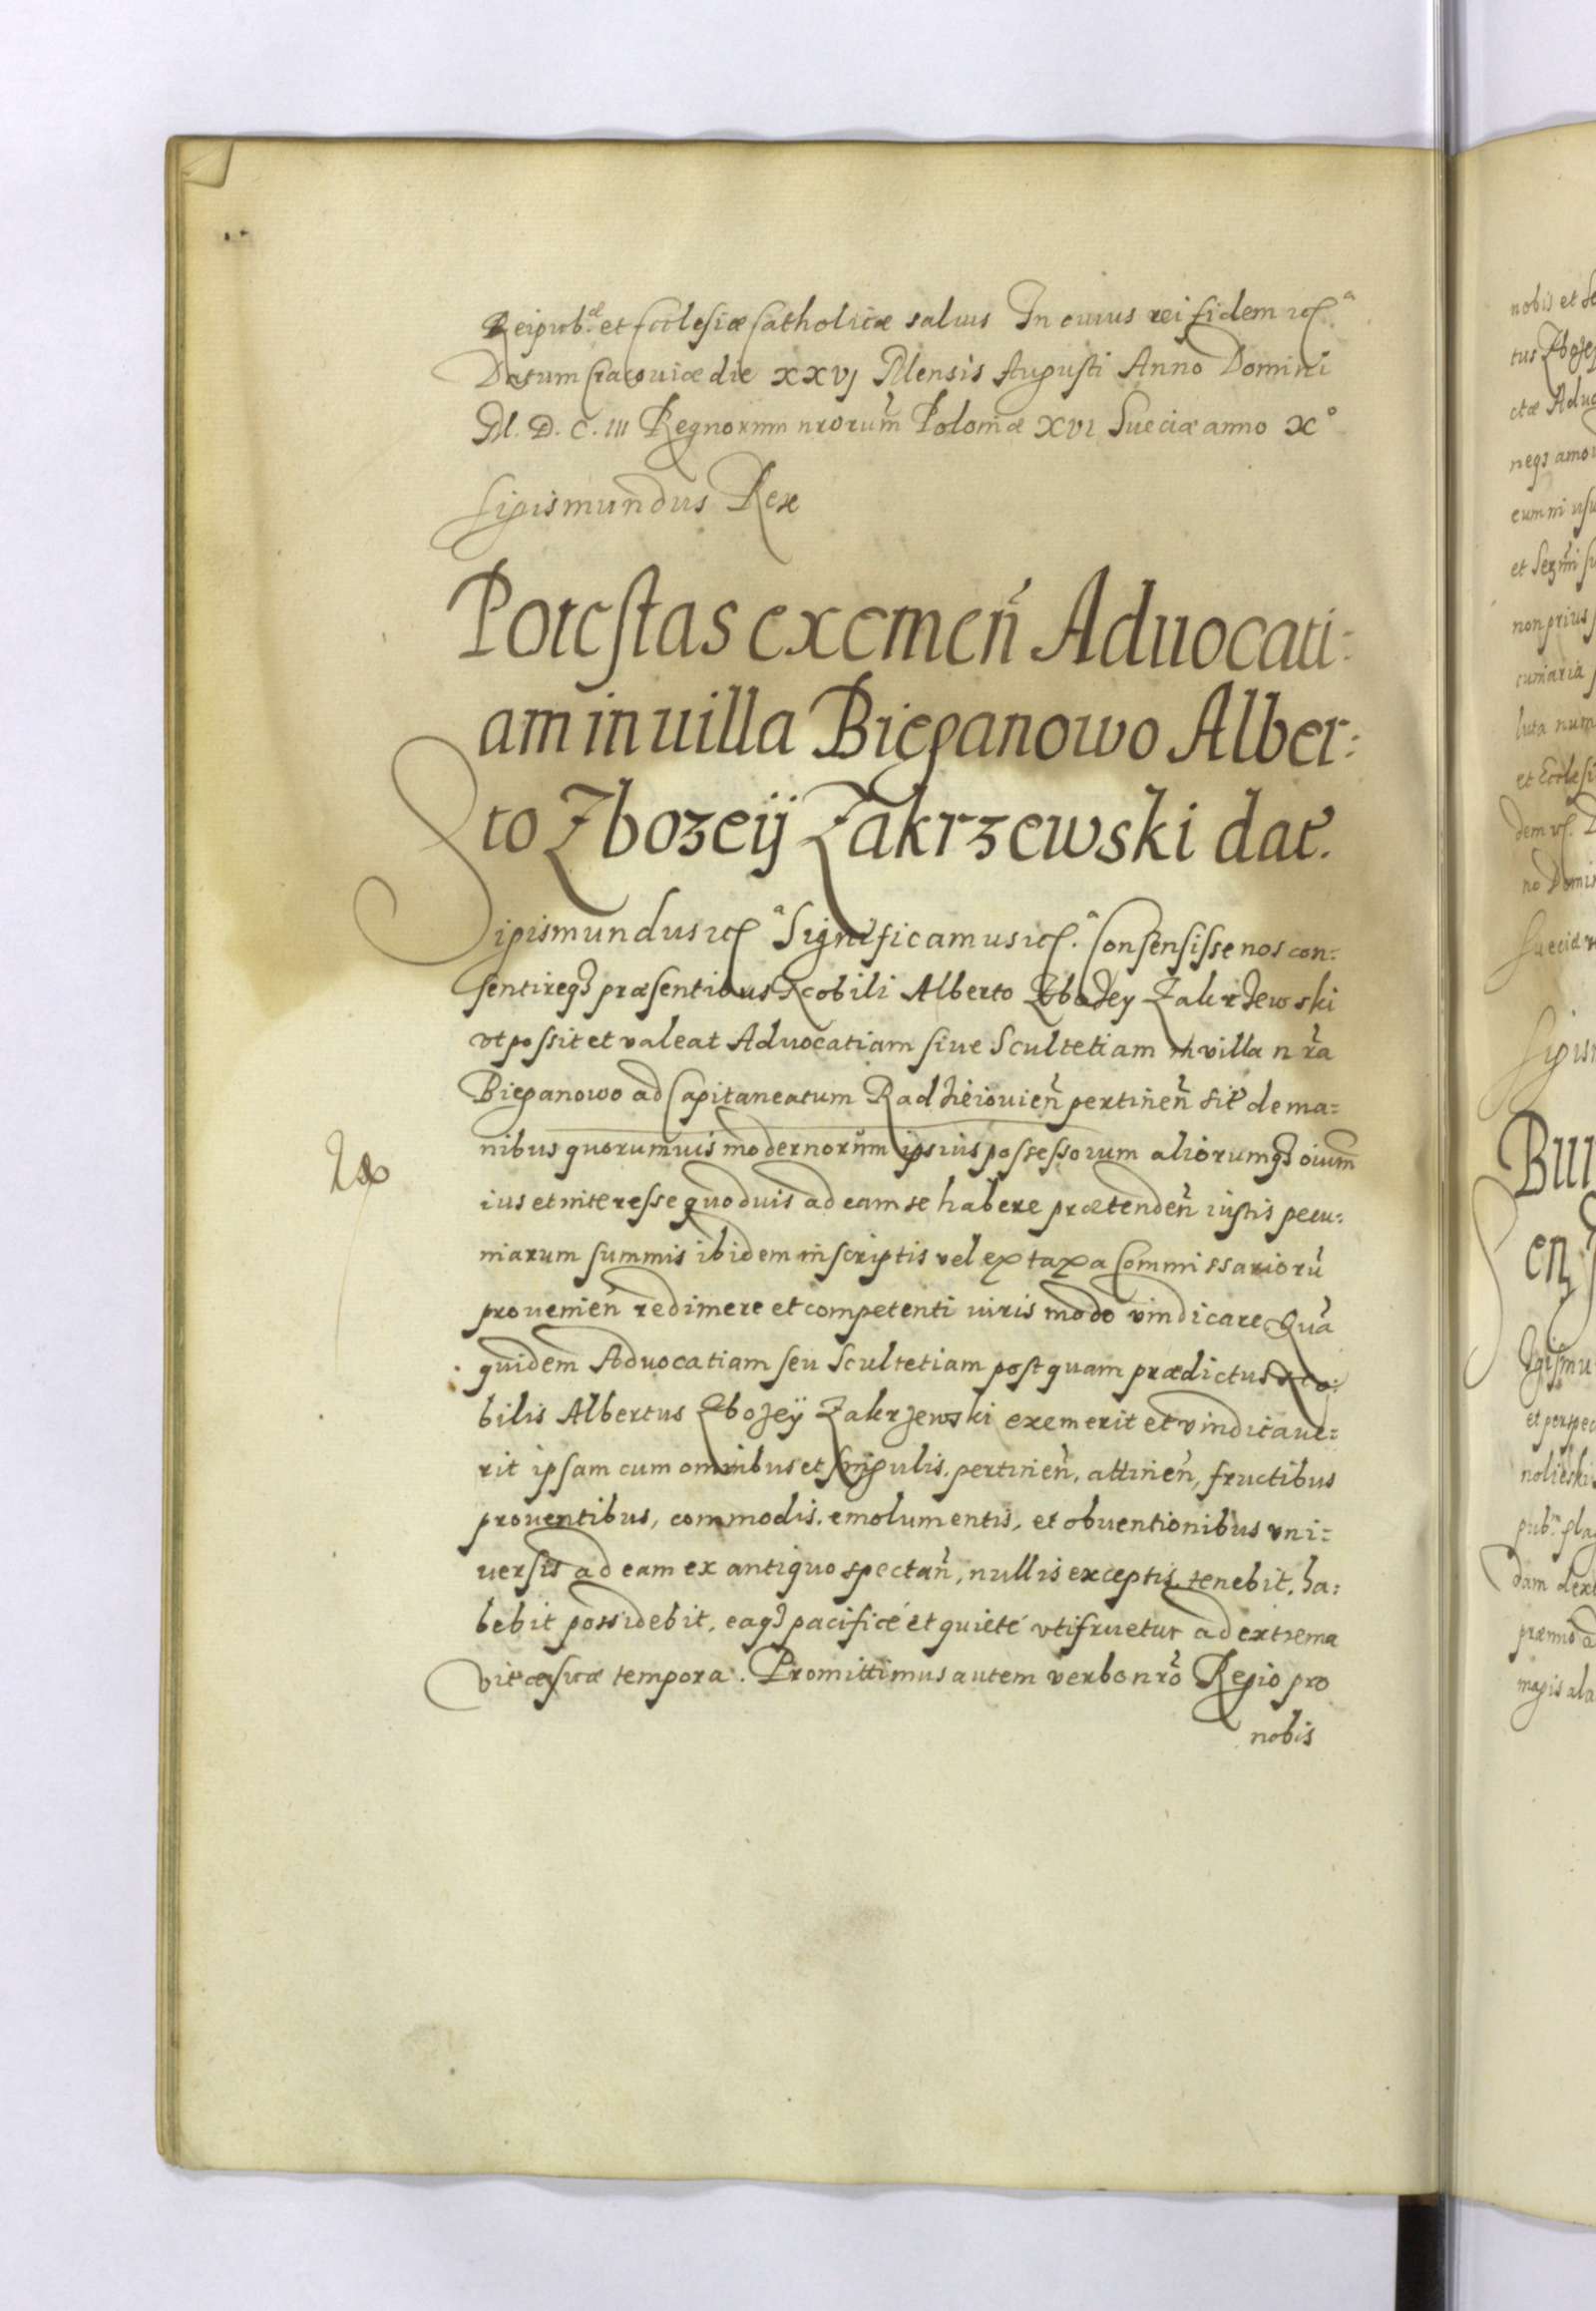 Reipub.æ et Ecclesiæ Catholicæ saluis In cuius rei fidem etc.a
Datum Cracouiæ die XXVJ Mensis Augusti Anno Domini
M. D. C. III Regnorum nrorum Poloniæ XVI Sueciæ anno X°
Sigismundus Rex
Potestas eximen̄ Aduocati:
am in uilla Bieganowo Alber:
to Zbozeij Zakrzewski dat.
Sigismundus etc.a Significamus etc.a Consensisse nos con:
sentireqꝫ præsentibus Nobili Alberto Zbozey Zakrzewski
vt possit et valeat Aduocatiam siue Scultetiam in villa nra
Bieganowo ad Capitaneatum Radzieiouien̄ pertinen̄ sit̃ de ma=
nibus quorumuis modernorum ipsius possessorum aliorumqꝫ oium
ius et interesse quoduis ad eam se habere prætenden̄ iustis pecu:
niarum summis ibidem inscriptis vel ex taxa Commissarioru
prouenien̄ redimere et competenti iuris modo vindicare Qua
quidem Aduocatiam seu Scultetiam postquam prædictus No:
bilis Albertus Zbozeÿ Zakrzewski exemerit et vindicaue=
rit ipsam cum omnibus et singulis. pertinen̄, attinen̄, fructibus
prouentibus, commodis. emolumentis, et obuentionibus vni=
uersis ad eam ex antiquo spectan̄, nullis exceptis, tenebit, ha:
bebit possidebit, eaqꝫ pacificé et quieté vtifruetur ad extrema
vitæ suæ tempora. Promittimus autem verbo nro Regio pro
nobis
nobis et
tus Zbozey
ctæ Aduo
neqꝫ amo
eum in usu
non prius
luta num
et Ecclesi
no Domi
Sueciæ
Sigis
et perspec
nolieski